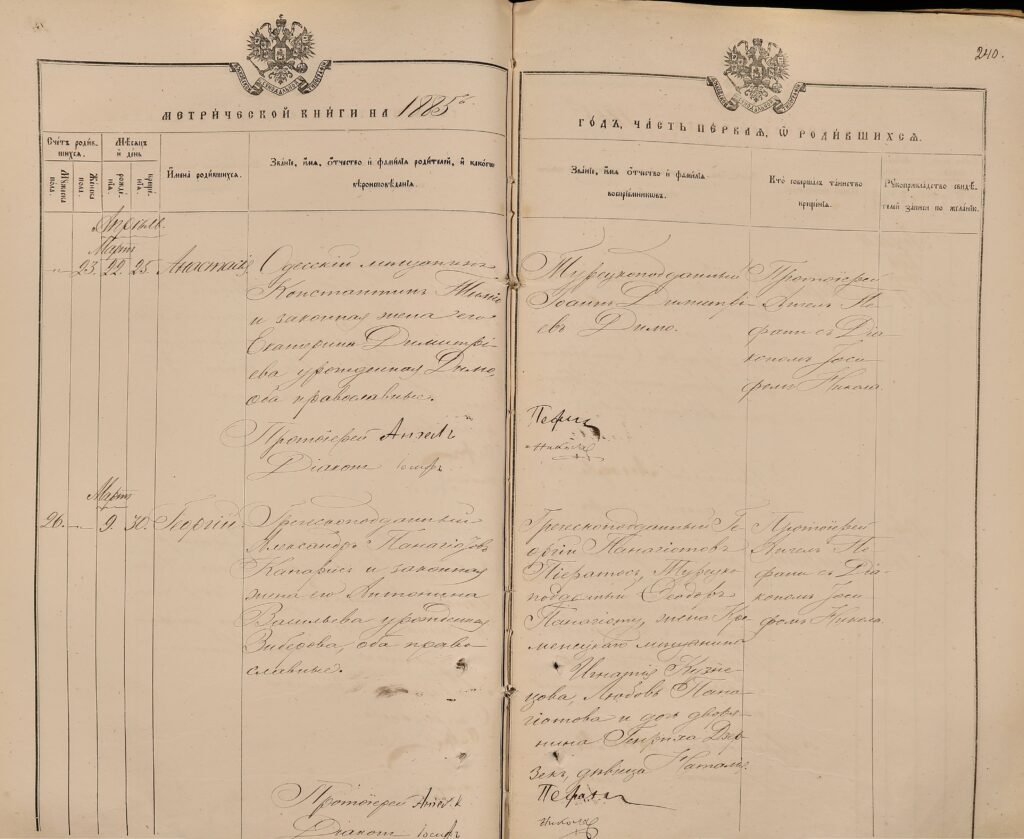 240.
МЕТРИЧЕСКОЙ КНИГИ НА 1885
ГОДЪ, ЧАСТЬ ПЕРВАЯ, Ѡ РОДИВШИХСЯ.
Счетъ родившихся.
Мужеска пола.
Женска пола.
Мѣсяцъ и день
рожденія.
крещенія.
Имена родившихся.
Званіе, имя, отчество и фамилія родителей, и какого
вѣроисповѣданія.
Званіе, имя отчество и фамилія
воспріемниковъ.
Кто совершалъ таинство
крещенія.
Рукоприкладство свидѣ-
телей записи по желанію.
Мартъ
23. 22. 25. Анастасія
Одесскій мѣщанинъ
Константинъ
и законная жена его
Екатерина Димитрі-
ева урожденная Димо,
оба православные.
Протоіерей Ангелъ
Діаконъ Іосифъ
Турецкоподданный
Іоаннъ Димитрі-
евъ Димо.
Пефани
Никола
Протоіерей
Ангелъ Пе-
фани съ Діа-
кономъ Іоси-
фомъ Никола
Мартъ
26. — 9. 30. Георгій.
Греческоподданный
Александръ Панагіотовъ
Капарисъ и законная
жена его Антонина
Васильева урожденная
оба право-
славные.
Протоіерей Ангелъ
Діаконъ Іосифъ
Греческоподданный Ге-
оргій Панагіотовъ
Турецко
подданный Ѳеодоръ
Панагіоту, жена Кре
менецкаго мѣщанина
Игнатія Кузне-
цова, Любовь Пана-
гіотова и дочь дворя-
нина Генриха
дѣвица
Пефани
Никола
Протоіерей
Ангелъ Пе-
фани съ Діа-
кономъ Іоси-
фомъ Никола